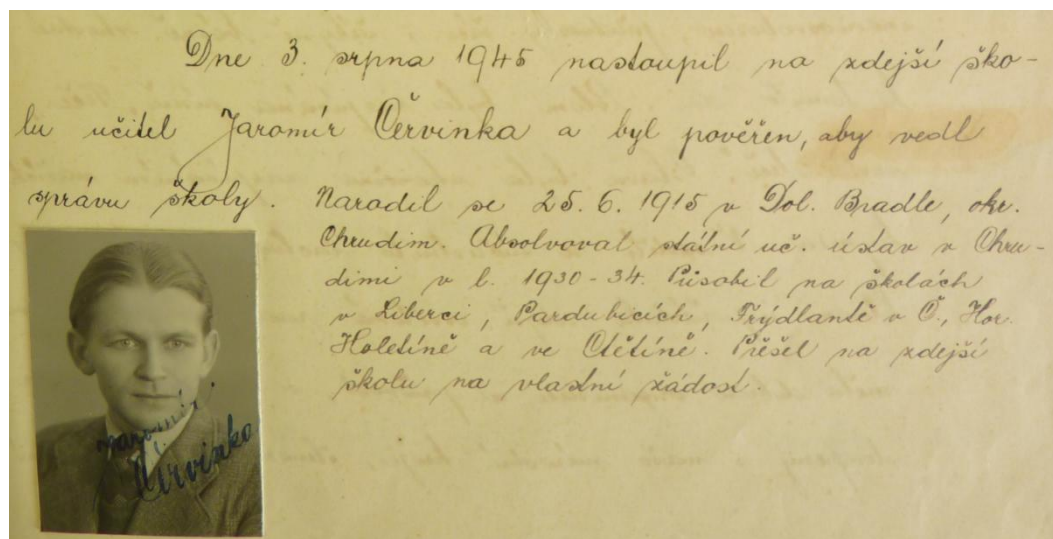 Dne 3. srpna 1945 nastoupil na zdejší ško-
lu učitel Jaromír Červinka a byl pověřen, aby vedl
správu školy.
Narodil se 25. 6. 1915 v Dol. Bradle, okr.
Chrudim. Absolvoval státní uč. ústav v Chru-
dimi v l. 1930-34. Působil na školách
v Liberci, Pardubicích, Frýdlantě v Č., Hor.
Holetíně a ve Ctětíně. Přešel na zdejší
školu na vlastní žádost.
Jaromír
Červinka